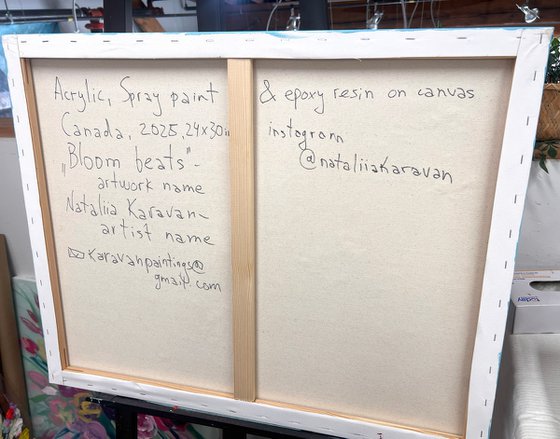 Acrylic, Spray paint & epoxy resin on canvas
Canada, 2025, 24x30in
„Bloom beats" -
artwork name
Nataliia Karavan -
artist name
✉ Karavanpaintings@
gmail.com
instagram
@nataliiaKaravan